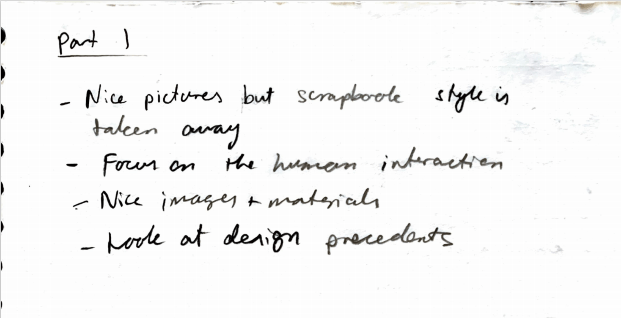 Part 1
- Nice pictures but scrapbook style is
taken away
- Focus on the human interaction
- Nice images + materials
- Look at design precedents